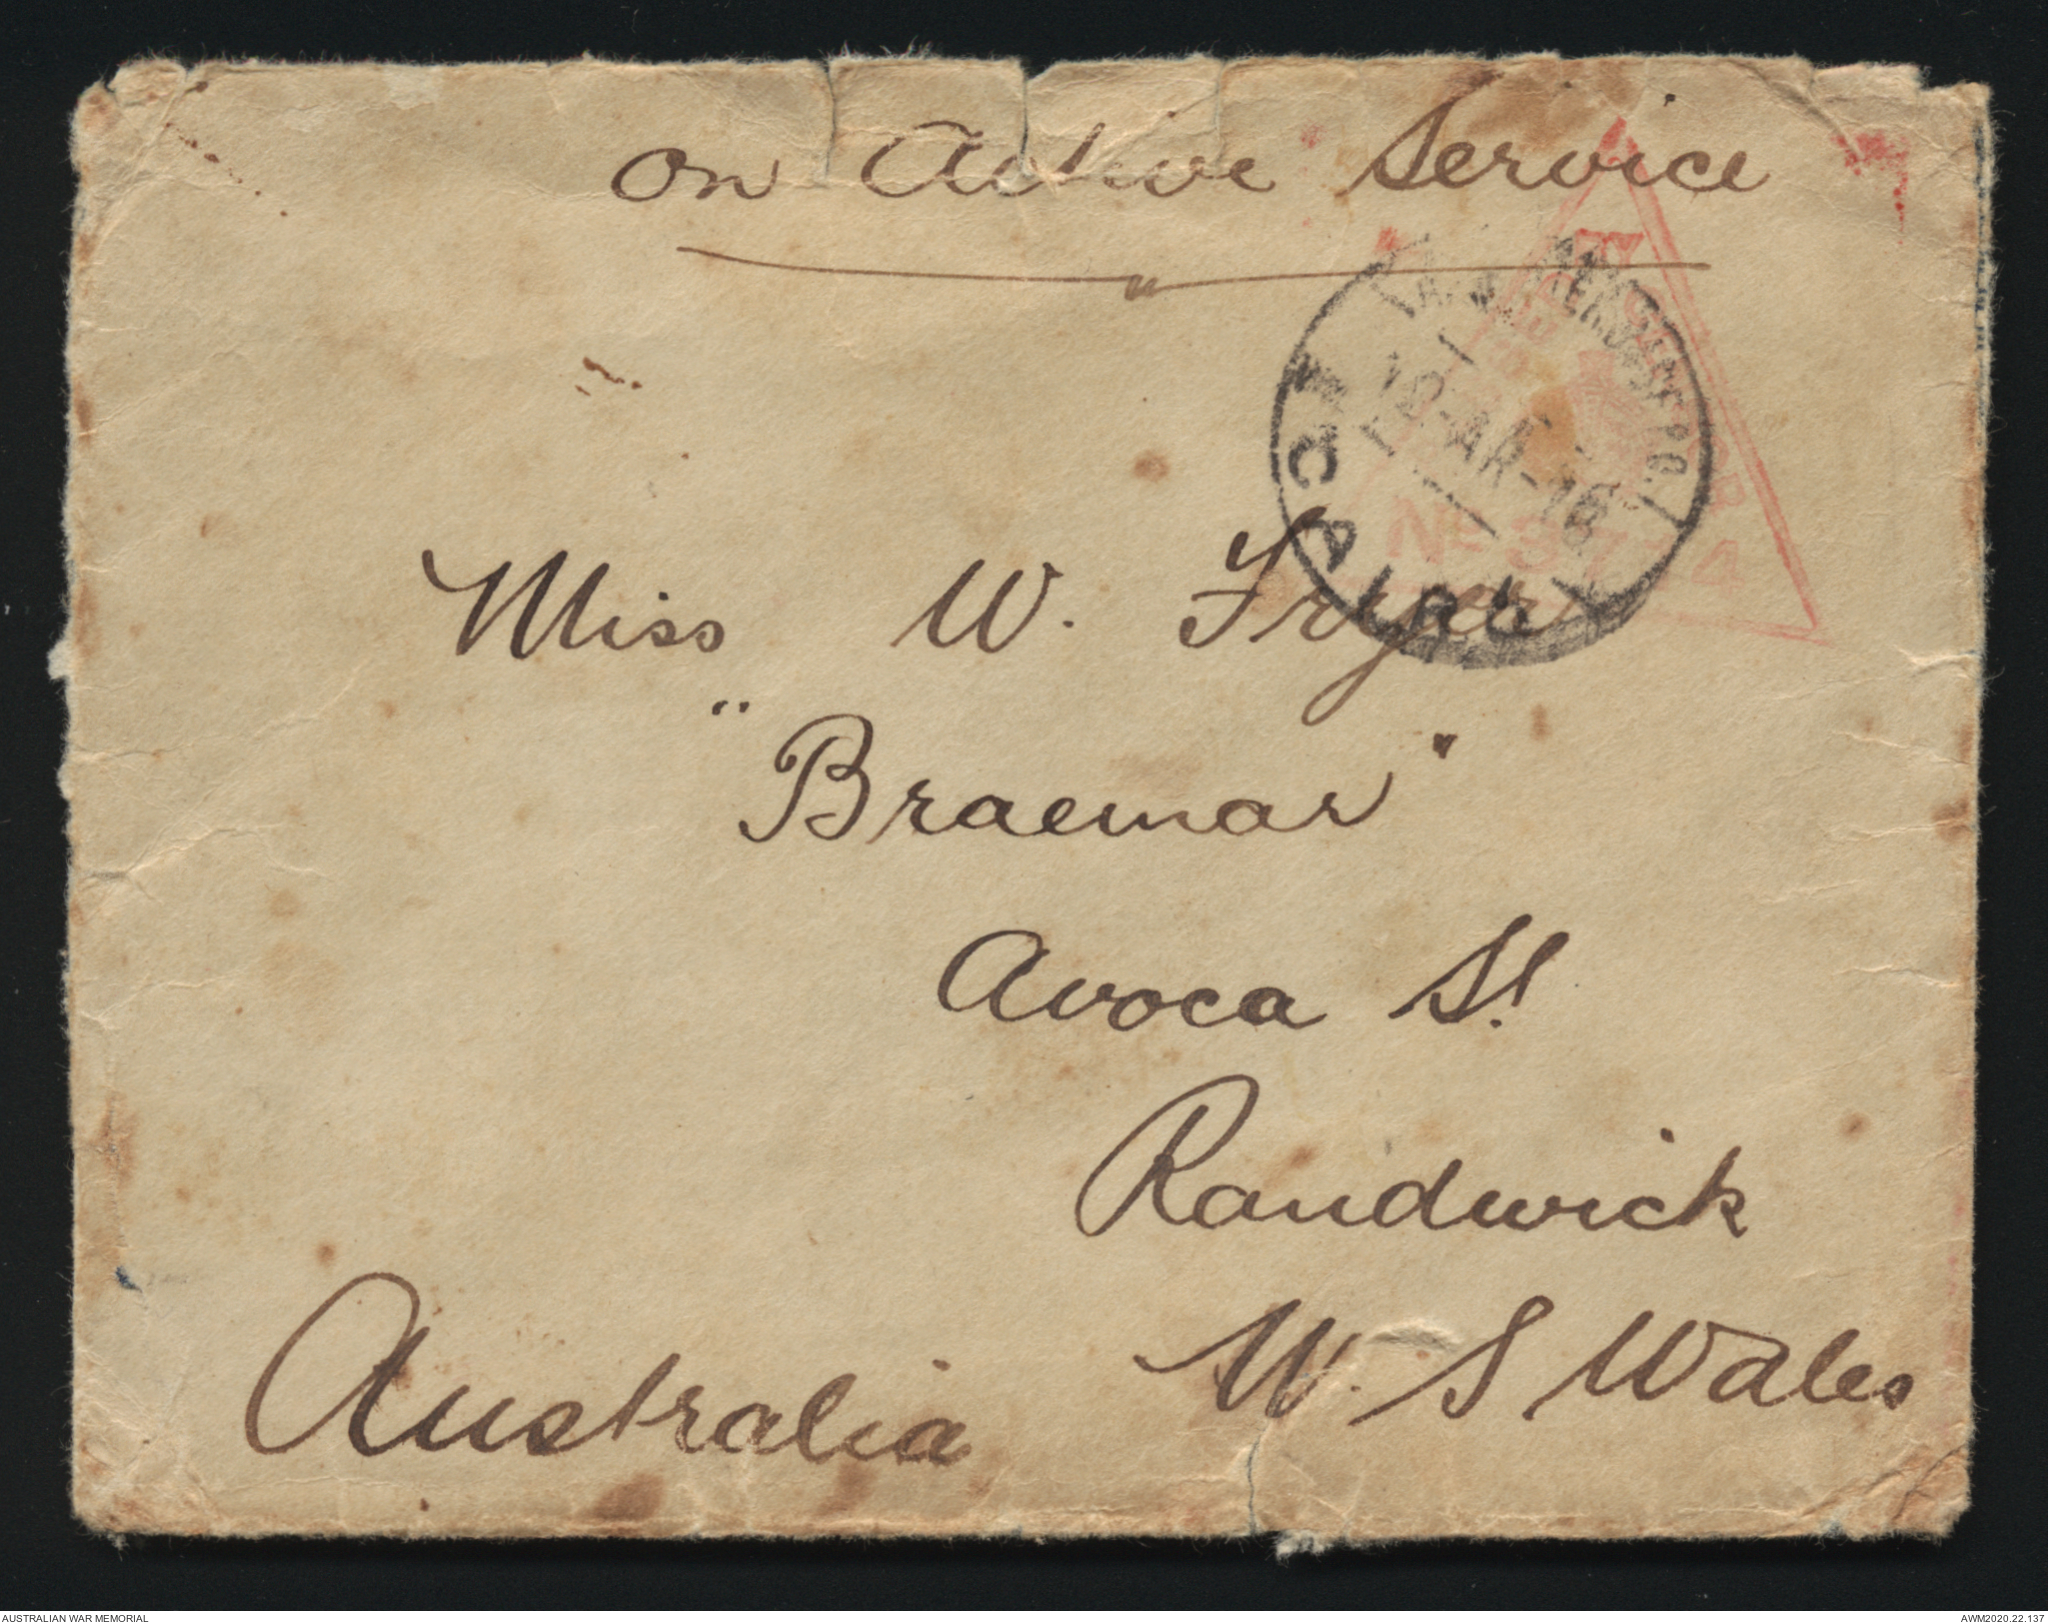 On Active Service
No 374
12-AR-16
CAIRO
Miss W. Fryer
"Braemar"
Avoca St.
Randwick
N. S Wales
Australia
AUSTRALIAN WAR MEMORIAL
AWM2020.22.137